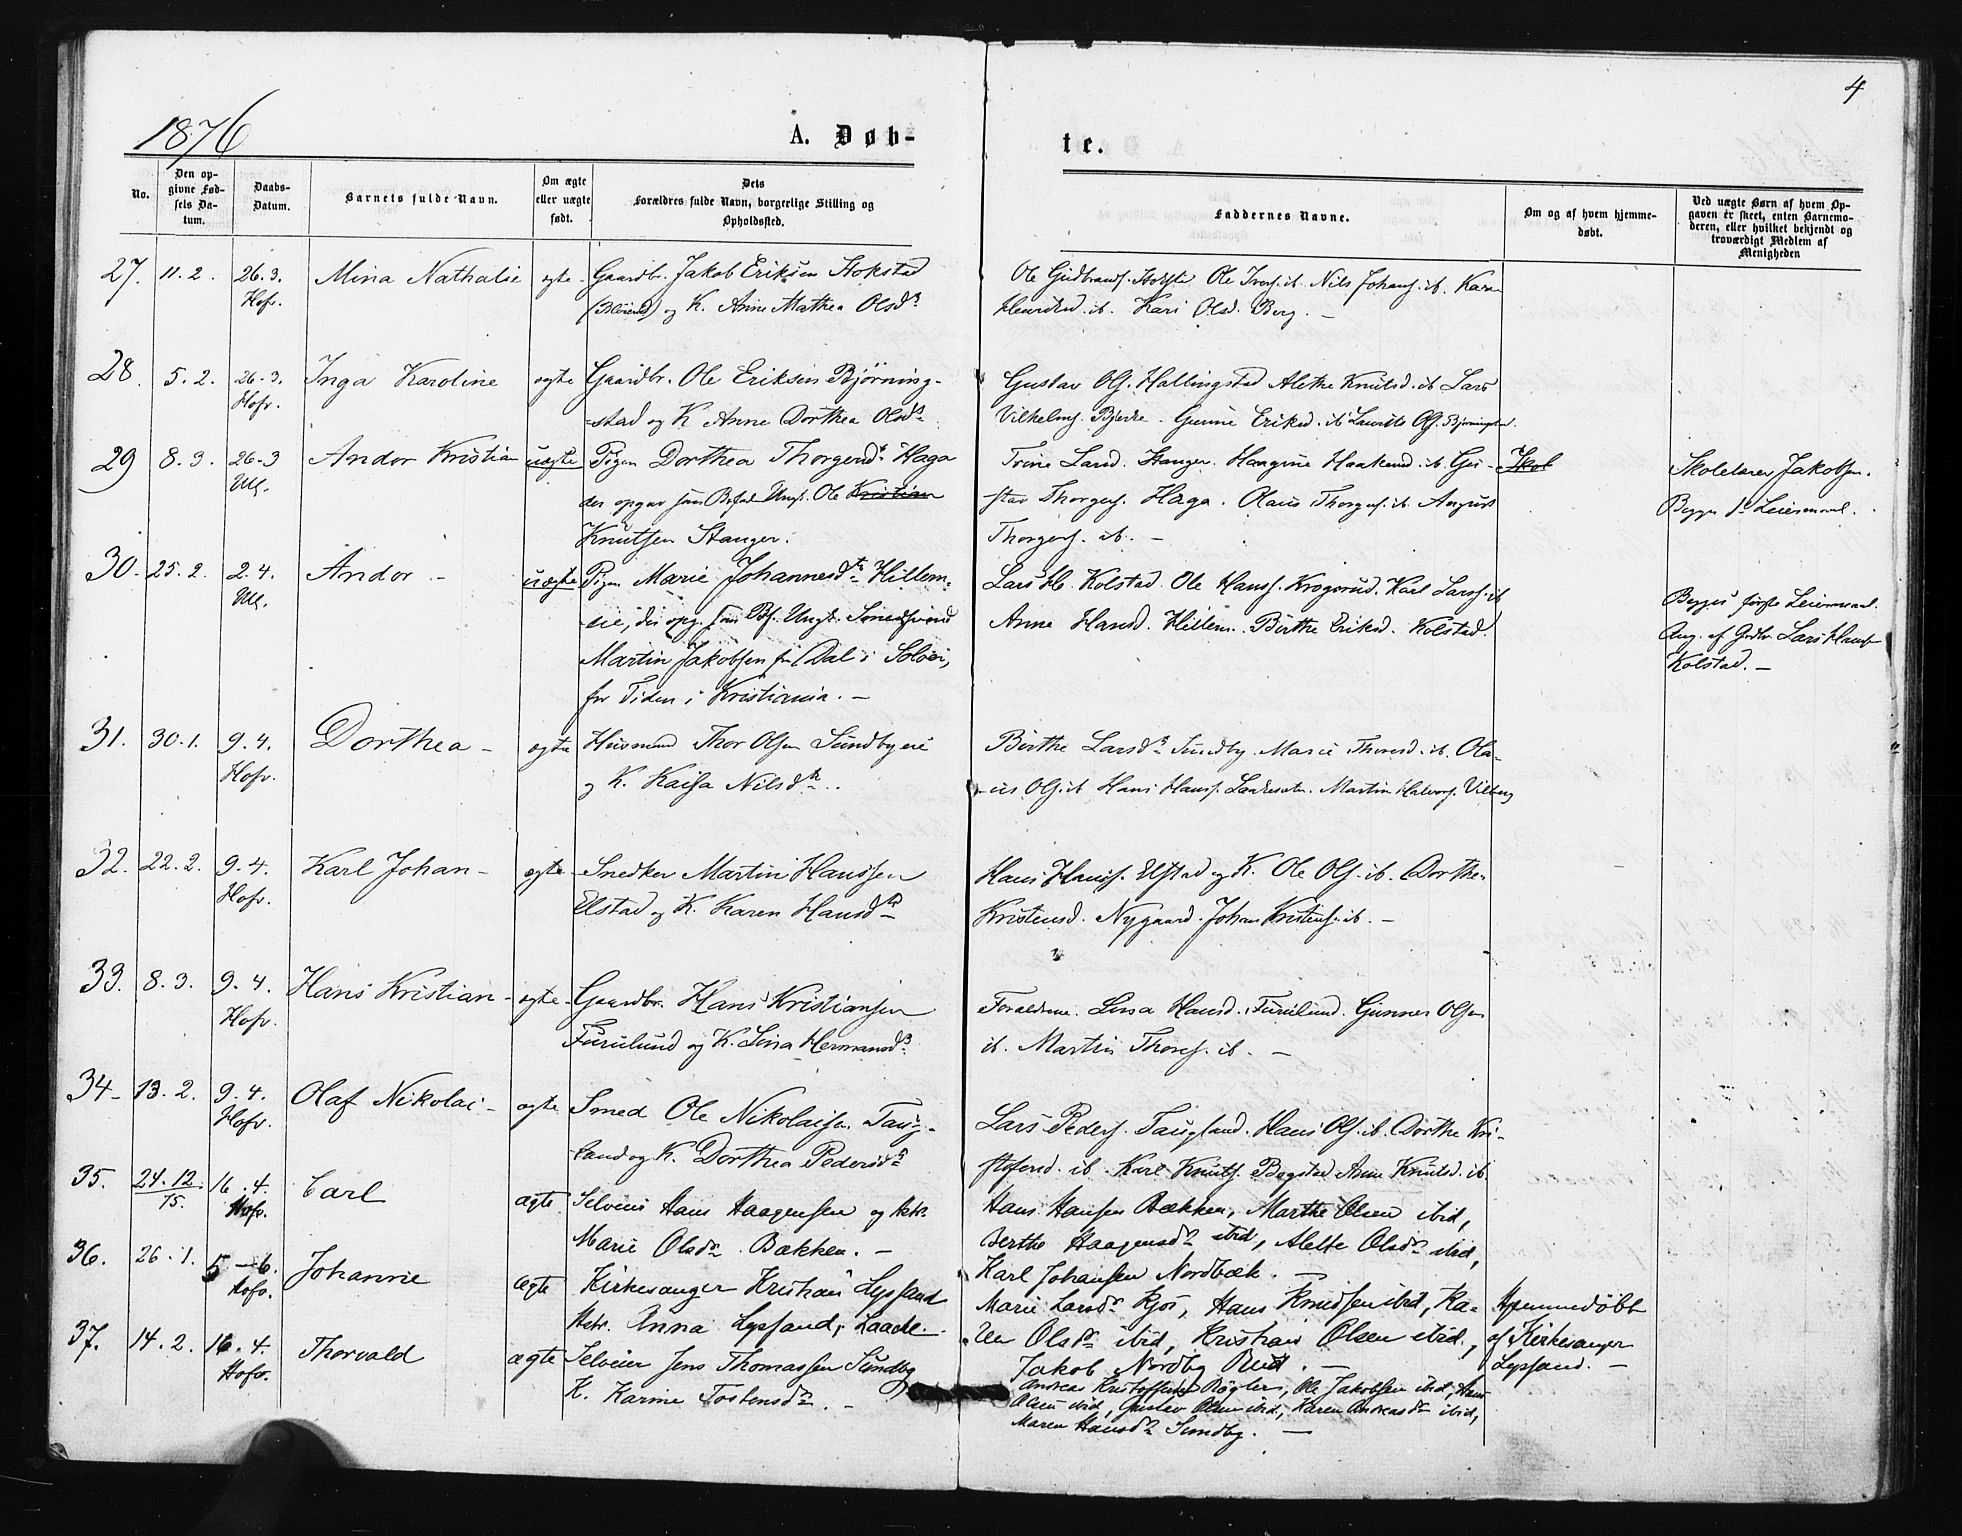 4
1876
A. Døb-
te.
No.
Den op-
givne Fød-
sels Da-
tum.
Daabs-
Datum.
Barnets fulde Navn.
Om ægte
eller uægte
født.
Dets
Forældres fulde Navn, borgerlige Stilling og
Opholdssted.
Faddernes Navne.
Om og af hvem hjemme-
døbt.
Ved uægte Børn af hvem Op-
gaven er skeet, enten Barnemo-
deren, eller hvilket bekjendt og
troværdigt Medlem af
Menigheden
27. 11. 2. 26. 3. Mina Nathalie ægte Gaardbr. Jakob Eriksen Stokstad
Hofv. og K. Anne Mathea Olsdr
Ole Gudbrands. Ole Ivers. ib. Nils Johans. ib. Karen
ib. Kari Olsd. Berg. —
28. 5. 2. 26. 3. Inga Karoline ægte Gaardbr. Ole Eriksen Bjørning-
Hofv. stad og K Anne Dorthea Olsdr
Gustav Ols. Hallingstad Alethe Knutsd. ib Lars
Vilhelms. Bjerke. Gunne Eriksd. ib Laurits Ols. Bjørningstad.
29 8. 3. 26-3 Andor Kristian uægte Pigen Dorthea Thorgersdr Haga
Ull. der opgav som Barnefad. Ungk. Ole Kristian
Knutsen Stanger.
Trine Larsd. Stanger. Haakensd. ib. Gu-
stav Thorgers. Haga. Olaus Thorgers. ib. August
Thorgers. ib. —
Skol
Skolelærer Jakobsen.
Begges 1ste Leiermaal.
30. 25. 2. 2. 4. Andor — uægte Pigen Marie Johannesdtr Hillem-
Ull. eie, der opg. som Bf. Ungk. Smedsvend
Martin Jakobsen fra Dal i Soløer,
for Tiden i Kristiania. —
Lars H. Kolstad. Ole Hanss. Krogsrud. Karl Larss. ib
Anne Hansd. Hillem. Birthe Eriksd. Kolstad.
Begges første Leiermaal.
Ang. af Grdbr. Lars Hansen
Kolstad. —
31. 30. 1. 9. 4. Dorthea — ægte Huusmand Thor Olsen Sundbyeie
Hofv. og K. Kaisa Nilsdtr.
Birthe Larsdr Sundby. Marie Thoresd. ib. Ola-
us Ols. ib Hans Hanss. Martin Halvors. Vilberg
32. 22. 2. 9. 4. Karl Johan — ægte Snedker Martin Hanssen
Hofv. Elstad og K. Karen Hansdr
Hans Hanss. Elstad og K. Ole Ols. ib. Dorthe
Kristensd. Nygaard. Johan Kristens. ib. —
33. 8. 3. 9. 4. Hans Kristian — ægte Gaardbr. Hans Kristiansen
Hofv. Furulund og K. Lina Hermansdr.
Forældrene. Lina Hansd. Furulund. Gunner Olsen
ib. Martin Thores. ib. —
34 — 13. 2. 9. 4. Olaf Nikolai — ægte Smed Ole Nikolaisen Taug-
Hofv. land og K. Dorthea Pedersdr
Lars Peders. Taugland. Hans Ols. ib. Dorthe Kri-
stofersd. ib. Karl Knuts. Bogstad Anne Knutsd. ib.
35. 24. 12. 16. 4. Carl ægte Selveier Hans Haagensen og Hstr.
75. Hofv. Marie Olsdr Bækken. —
Hans Hansen Bækken, Marthe Olsen ibid,
Berthe Haagensdr ibid, Alette Olsdr ibid,
Karl Johansen Nordbæk. —
36. 26. 1. 5 — 6. Johanne ægte Kirkesanger Kristian Lyssand
Hofv. Hstr. Anna Lyssand,
Marie Larsdr Kjos, Hans Knudsen ibid, Ka-
ren Olsdr ibid, Kristian Olsen ibid.,
Jakob Nordby Rud. —
Hjemmedøbt
af Kirkesanger
Lyssand. —
37. 14. 2. 16. 4. Thorvald ægte Selveier Jens Thomassen Sundby
Hofv. K. Karine Tostensdr. —
Andreas Kristoffersen Røgler, Ole Jakobsen ibid, Hans
Olsen ibid, Gustav Olsen ibid, Karen Andreasdr ibid,
Maren Hansdr Sundby. —